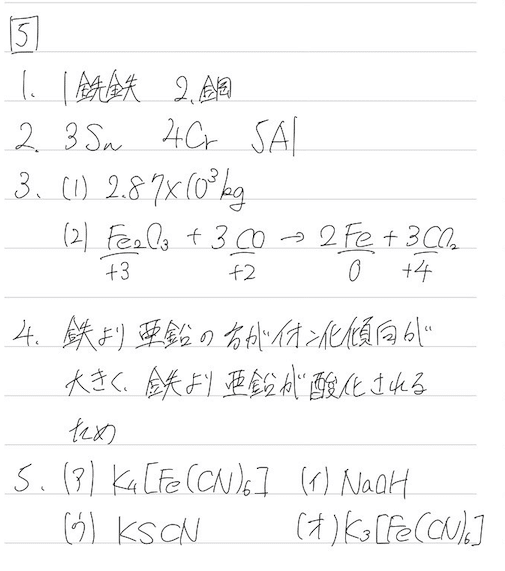 5
1. 1 銑鉄 2. 鋼
2. 3 Sn 4 Cr 5 Al
3. (1) 2.87×10³kg
(2) Fe₂O₃ + 3CO → 2Fe + 3CO₂
+3 +2 0 +4
4. 鉄より亜鉛の方がイオン化傾向が
大きく、鉄より亜鉛が酸化される
ため
5. (ア) K₄[Fe(CN)₆] (イ) NaOH
(ウ) KSCN (オ) K₃[Fe(CN)₆]